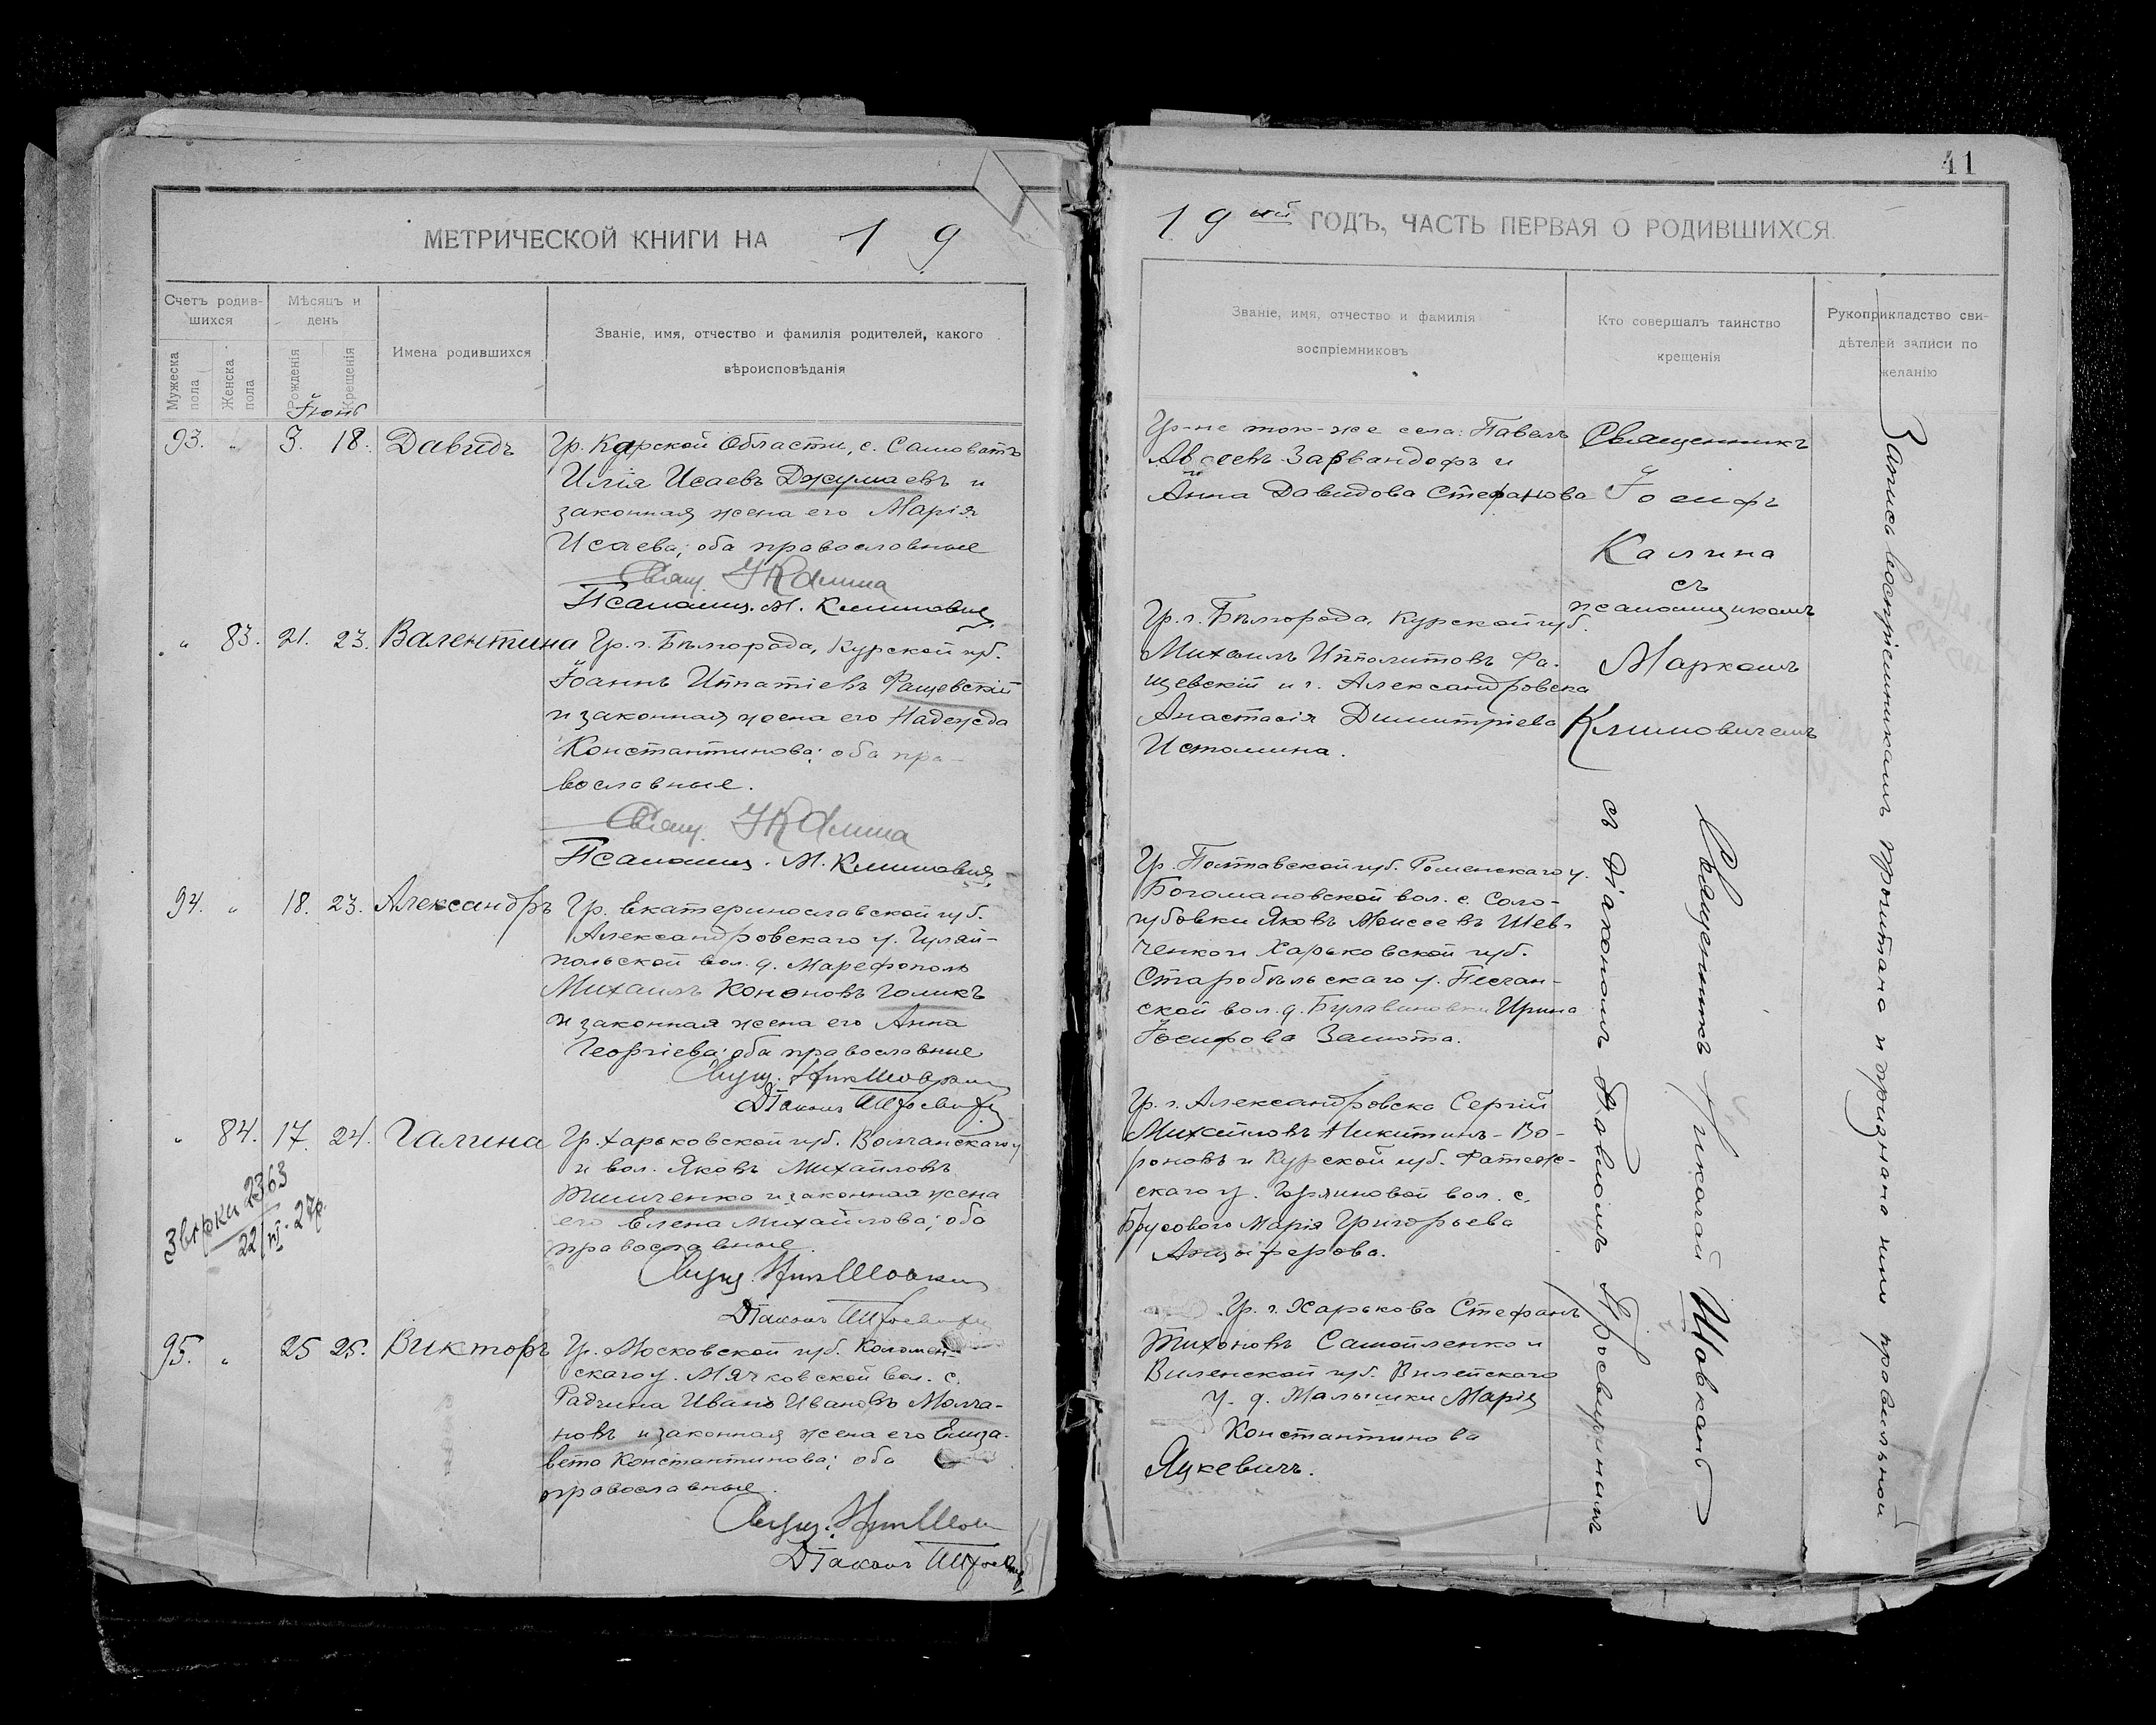 МЕТРИЧЕСКОЙ КНИГИ НА 1 9
Счетъ родив-
шихся
Мужеска пола
Женска пола
Мѣсяцъ и
день
Рожденія
Крещенія
Имена родившихся
Званіе, имя, отчество и фамилія родителей, какого
вѣроисповѣданія
Іюнь
93. „ 3. 18. Давидъ
Гр. Карской Области, с. Самоватъ
Илія Исаевъ Джумаевъ и
законная жена его Марія
Исаева; оба православные
Свящ. І Калина
Псаломщ. М. Климовичъ
„ 83. 21. 23. Валентина
Гр. г. Бѣлгорода, Курской губ.
Іоаннъ Ипатіевъ Фащевскій
и законная жена его Надежда
Константинова; оба пра-
вославные.
Свящ. І Калина
Псаломщ. М. Климовичъ
94. „ 18. 23. Александръ
Гр. Екатеринославской губ.
Александровскаго у. Гуляй-
польской вол. д. Марефополь
Михаилъ Кононовъ Голикъ
и законная жена его Анна
Георгіева; оба православные
Свящ. Ник Шовкан
Діаконъ
„ 84. 17. 24. Галина
Гр. Харьковской губ. Волчанскаго у
и вол. Яковъ Михайловъ
Тимченко и законная жена
его Елена Михайлова; оба
православные.
Свящ. Ник Шовкан
Діаконъ
Звірки 2363
22/VI. 27р.
95. „ 25 25. Викторъ
Гр. Московской губ. Коломен-
скаго у. Мячковской вол. с.
Радчина Иванъ Ивановъ Молча-
новъ и законная жена его Елиза-
вета Константинова; оба
православные.
Свящ. Ник Шов
Діаконъ
41
19 ый ГОДЪ, ЧАСТЬ ПЕРВАЯ О РОДИВШИХСЯ.
Званіе, имя, отчество и фамилія
воспріемниковъ
Кто совершалъ таинство
крещенія
Рукоприкладство сви-
дѣтелей записи по
желанію
Гр-не того-же села: Павелъ
Авдеевъ Зарвандофъ и
Анна Давидова Стефанова
Гр. г. Бѣлгорода, Курской губ.
Михаилъ Ипполитовъ Фа-
щевскій и г. Александровска
Анастасія Димитріева
Истомина.
Гр. Полтавской губ. Роменскаго у.
Богомановской вол. с. Соло-
губовки Яковъ Моисеевъ Шев-
ченко и Харьковской губ.
Старобѣльскаго у. Песчан-
ской вол. д. Булавиновки Ирина
Іосифова Замота.
Гр. г. Александровска Сергій
Михайловъ Никитинъ-Во-
роновъ и Курской губ. Фатеж-
скаго у. Горяиновой вол. с.
Брусового Марія Григорьева
Анциферова.
Гр. г. Харькова Стефанъ
Тихоновъ Самойленко и
Виленской губ. Вилейскаго
у. д. Малышки Марія
Константинова
Яцкевичъ.
Священникъ
Іосифъ
Калина
съ
псаломщикомъ
Маркомъ
Климовичемъ
Священникъ Николай Шовканъ
съ Діакономъ Павломъ Просвирнымъ
Запись воспріемникамъ прочитана и признана ими правильной